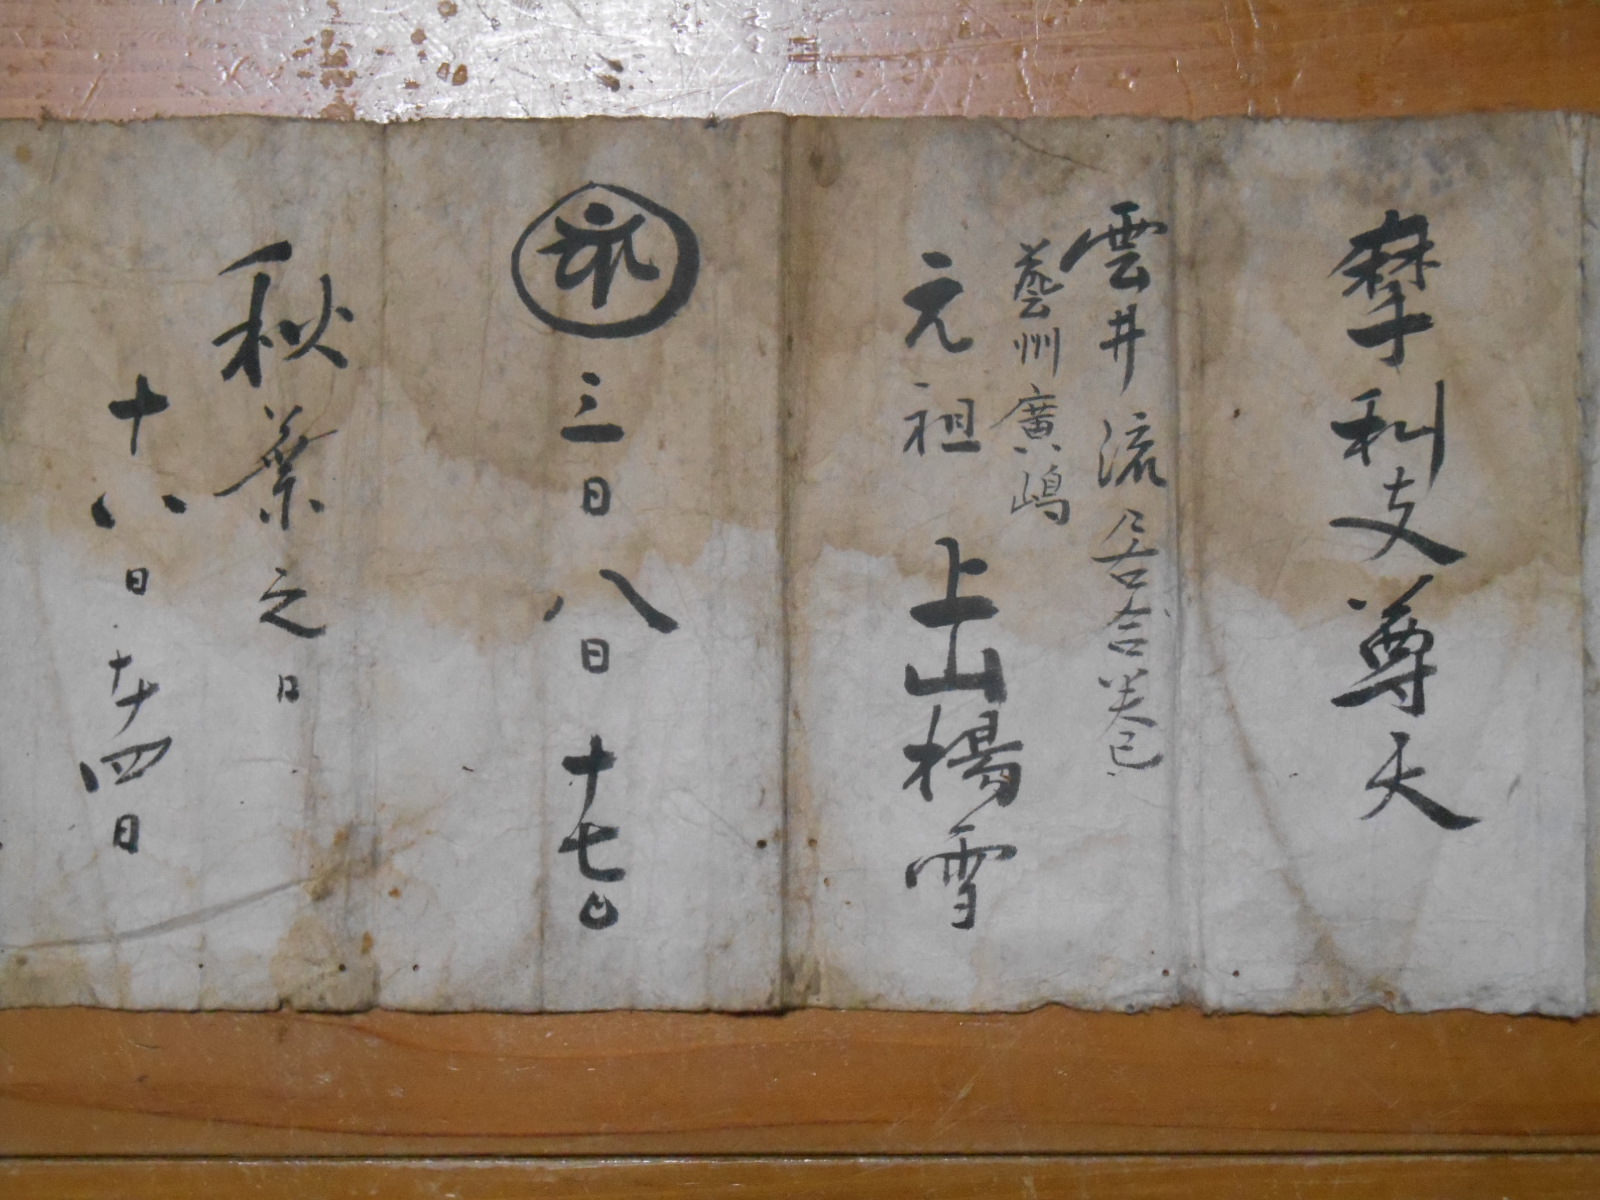 摩利支尊天
雲井流居合巻
藝州廣嶋
元祖 上山楊雪
三日 八日 十七日
秋葉之日
十八日 廿四日